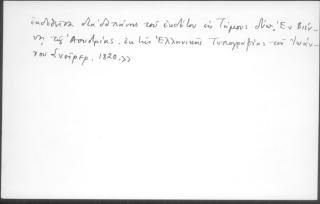 ἐκδοθεῖσα διὰ δαπάνης τοῦ ἐκδότου εἰς Τόμους δύω. Ἐν Βιέν-
νῃ τῆς Ἀουστρίας, ἐκ τῆς Ἑλληνικῆς Τυπογραφίας τοῦ Ἰωάν-
νου Σνείρερ, 1820.»